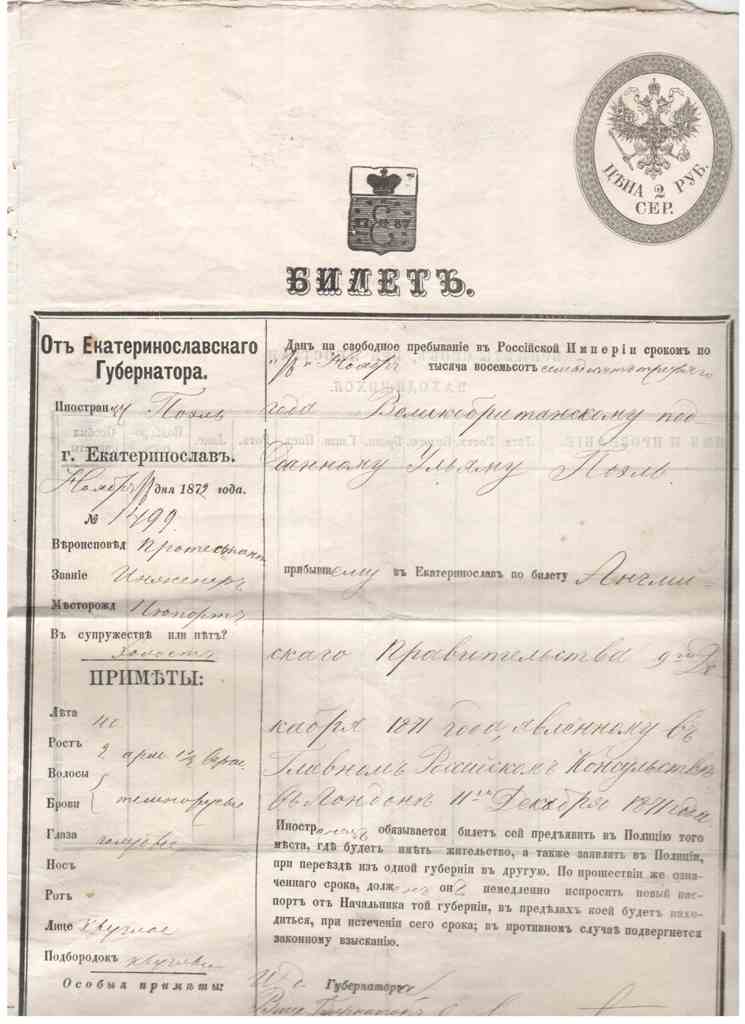 ЦѢНА 2 РУБ.
СЕР.
17 87
БИЛЕТЪ.
Отъ Екатеринославскаго
Губернатора.
Иностранцу Поэль
г. Екатеринославъ.
Ноябр дня 1872 года.
№ 1499
Вѣроисповѣд Протестант
Званіе Инженеръ
Мѣсторожд Нюпортъ
Въ супружествѣ или нѣтъ?
Холостъ
ПРИМѢТЫ:
Лѣта 40
Ростъ 2 арш
Волосы
Брови темнорусые
Глаза
Носъ
Ротъ
Лице круглое
Подбородокъ круглый
Особыя примѣты:
Данъ на свободное пребываніе въ Россійской Имперіи срокомъ по
Ноябр тысяча восемьсотъ семьдесятъ третьяго
года Великобританскому под
данному Ульяму Поэль
прибывшему въ Екатеринославъ по билету Англій
скаго Правительства 9го Де
кабря 1871 года, явленному въ
Главномъ Россійскомъ Консульствѣ
въ Лондонѣ 11го Декабря 1871 года
Иностранецъ обязывается билетъ сей предъявить въ Полицію того
мѣста, гдѣ будетъ имѣть жительство, а также заявлять въ Полиціи,
при переѣздѣ изъ одной губерніи въ другую. По прошествіи же озна-
ченнаго срока, долженъ онъ немедленно испросить новый пас-
портъ отъ Начальника той губерніи, въ предѣлахъ коей будетъ нахо-
диться, при истеченіи сего срока; въ противномъ случаѣ подвергнется
законному взысканію.
И. д. Губернатора
Вице Губернаторъ